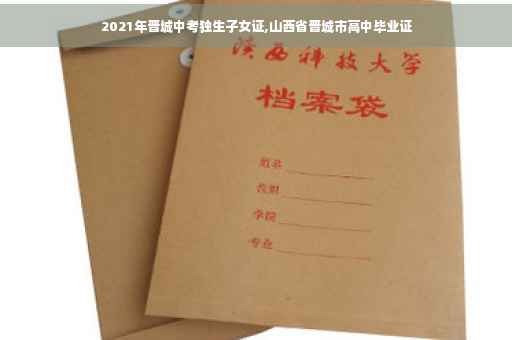 2021年晋城中考独生子女证,山西省晋城市高中毕业证
陕西科技大学
档案袋
姓名
班级
学院
专业